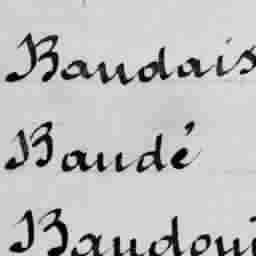 Baudais
Baudé
Baudoui